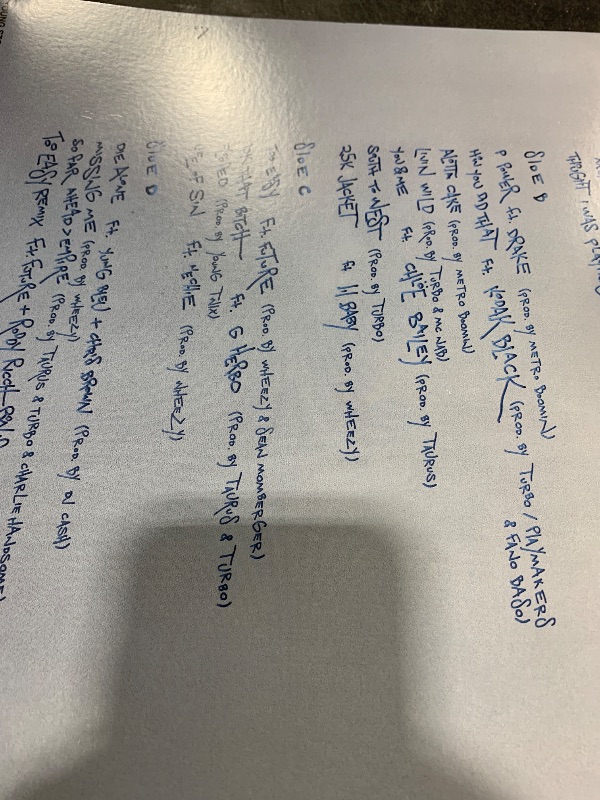 THOUGHT I WAS
SIDE B
P POWER Ft. DRAKE (PROD. BY METRO BOOMIN)
HOW YOU DID THAT Ft. KODAK BLACK (PROD. BY TURBO / PLAYMAKERS
& FANO BASO)
ALOTTA CAKE (PROD. BY METRO BOOMIN)
LIVIN WILD (PROD. BY TURBO & MC NIB)
YOU & ME Ft. CHLOE BAILEY (PROD. BY TAURUS)
SOUTH TO WEST (PROD. BY TURBO)
25K JACKET Ft. LIL BABY (PROD. BY WHEEZY)
SIDE C
TOO EASY Ft. FUTURE (PROD. BY WHEEZY & SEAN MOMBERGER)
THAT BITCH Ft. G HERBO (PROD. BY TAURUS & TURBO)
(PROD. BY YOUNG TWIX)
LIFE OF SIN Ft. NECHIE (PROD. BY WHEEZY)
SIDE D
DIE ALONE Ft. YUNG BLEU + CHRIS BROWN (PROD. BY DJ CASH)
MISSING ME (PROD. BY WHEEZY)
SO FAR AHEAD > EMPIRE (PROD. BY TAURUS & TURBO & CHARLIE HANDSOME)
TOO EASY REMIX Ft. FUTURE + RODDY RICCH